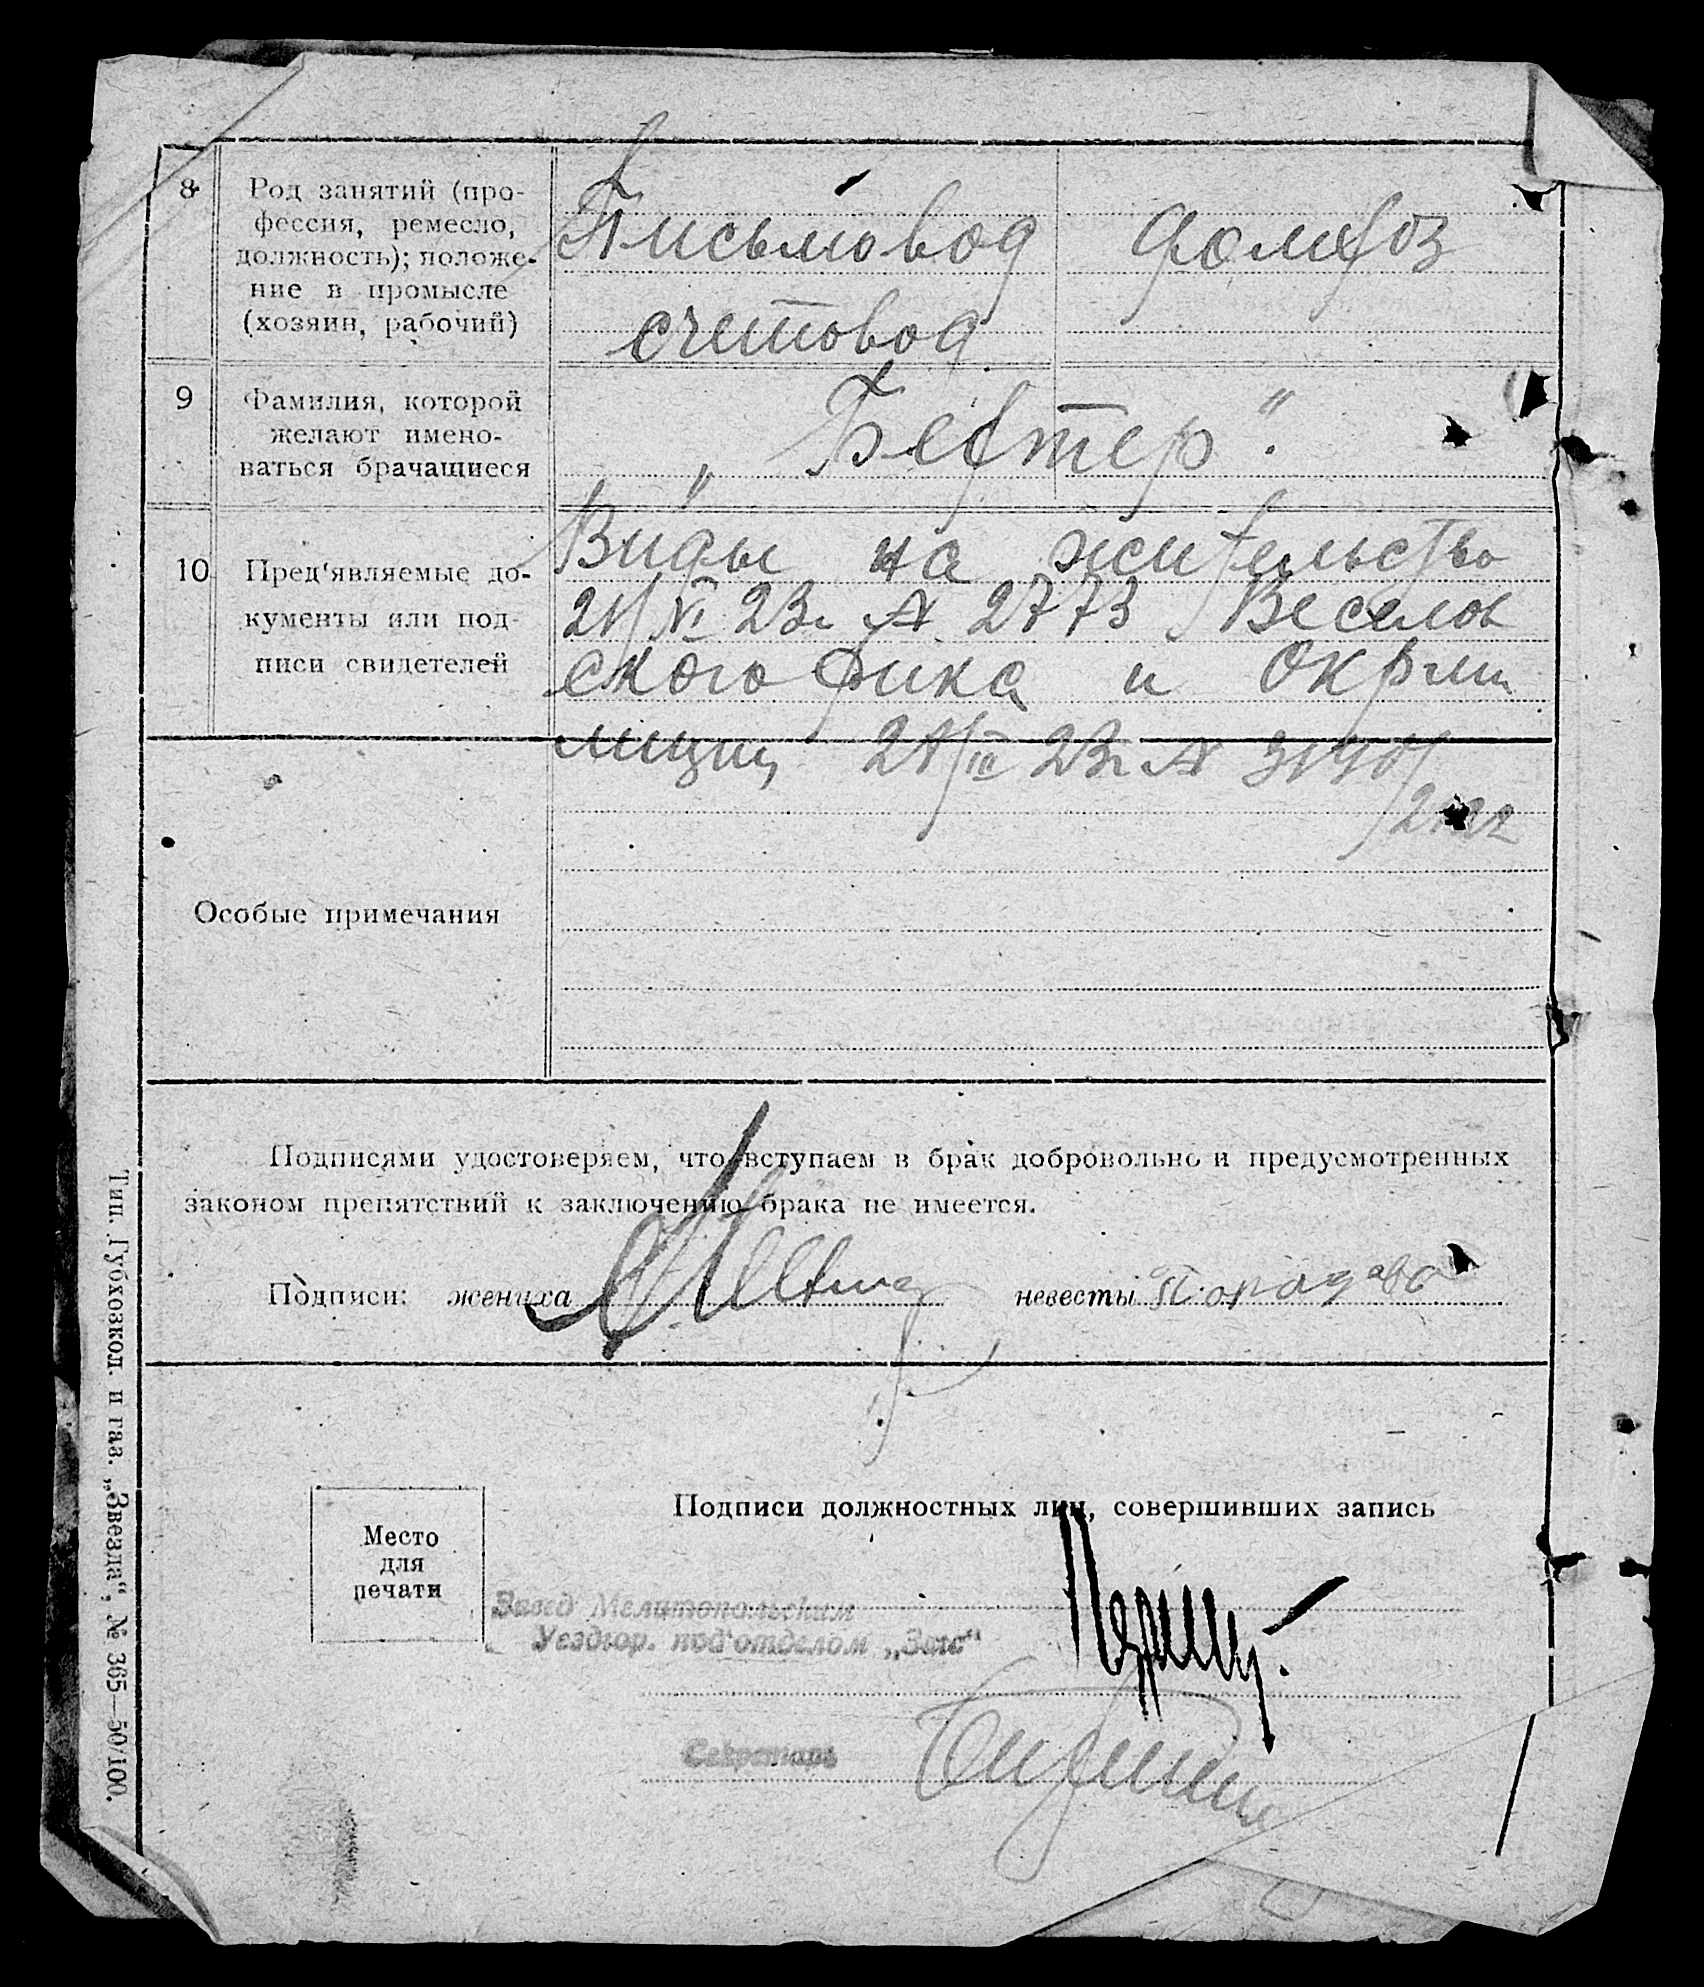 8
Род занятий (про-
фессия, ремесло,
должность); положе-
ние в промысле
(хозяин, рабочий)
Письмовод
счетовод
домхоз
9
Фамилия, которой
желают имено-
ваться брачащиеся
10
Пред'являемые до-
кументы или под-
писи свидетелей
Виды на жительство
21/VI 23г № 2773 Веселов
ского рика и Окрми
лиции 21/III 23г №
Особые примечания
Подписями удостоверяем, что вступаем в брак добровольно и предусмотренных
законом препятствий к заключению брака не имеется.
Подписи: жениха
невесты
Подписи должностных лиц, совершивших запись
Место
для
печати
Завед Мелитопольским
Уездгор. под'отделом „Загс“
Секретарь
Тип. Губхозкол. и газ. „Звезда“, № 365—50/100.